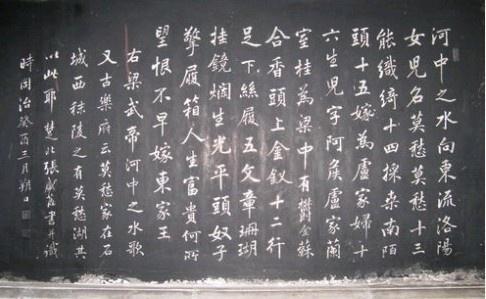 河中之水向東流洛陽
女兒名莫愁莫愁十三
能織綺十四採桑南陌
頭十五嫁為盧家婦十
六生兒字阿侯盧家蘭
室桂為梁中有鬱金蘇
合香頭上金釵十二行
足下絲履五文章珊瑚
挂鏡爛生光平頭奴子
擎履箱人生富貴何所
望恨不早嫁東家王
右梁武帝河中之水歌
又古樂府云莫愁家在石
城西秣陵之有莫愁湖其
以此耶楚北張盛藻書并識
時同治癸酉三月朔日